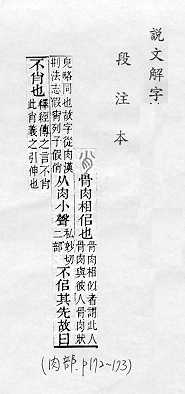 說文解字
段注本
骨肉相佀也骨肉相佀者謂此人骨肉與彼人骨肉狀
皃略同也故字從肉漢刑法志假宵列子假俏从肉小聲私妙切二部不佀其先故曰
不肖也釋經傳之言不肖此肖義之引伸也
(肉部.p172~173)